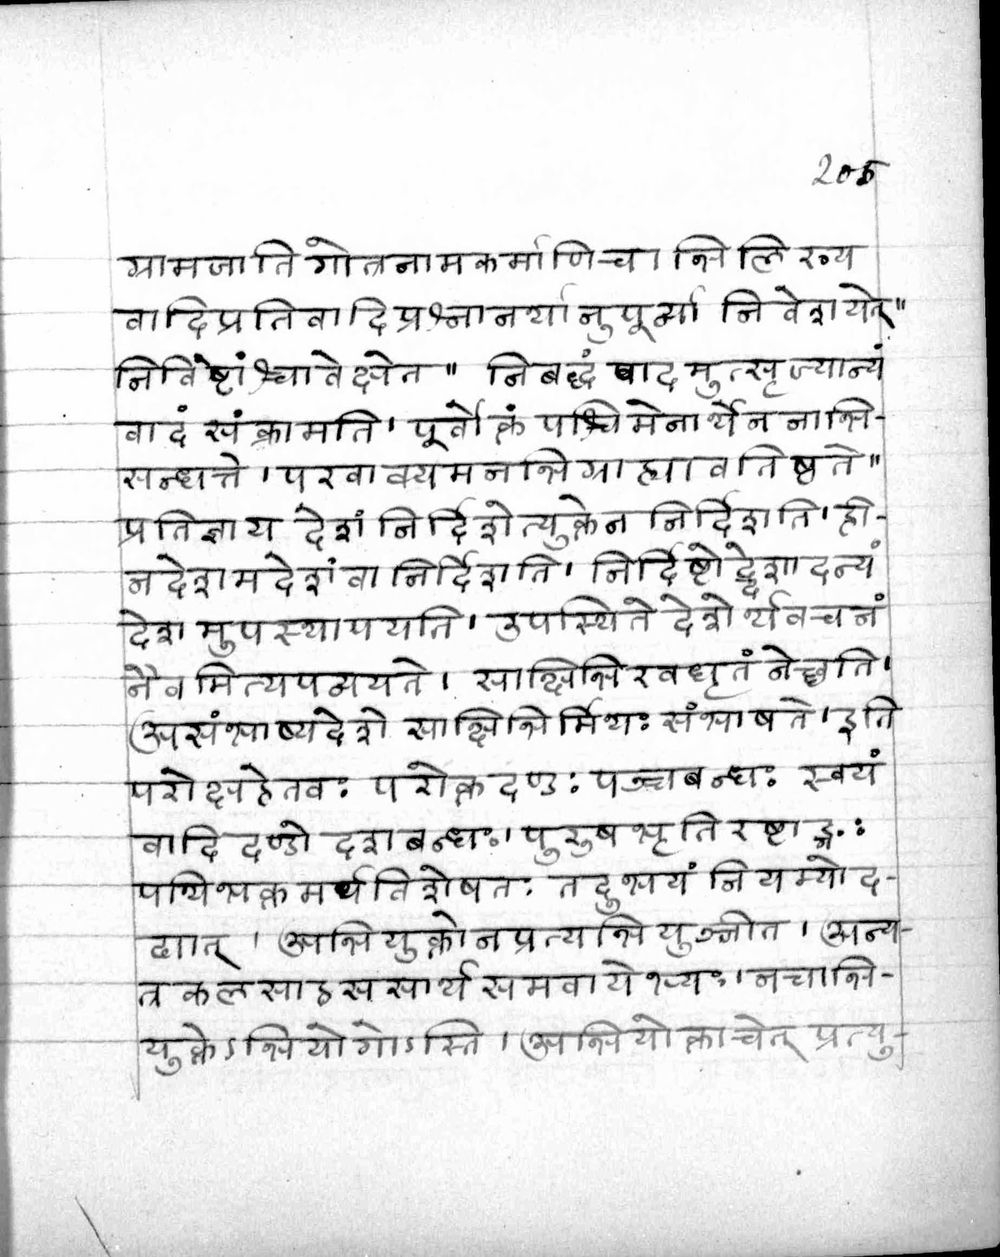 205
ग्रामजातिगोत्रनामकर्माणि च। भिलिख्य
वादिप्रतिवादिप्रश्नानर्थानुपूर्व्या निवेशयेत्"
निविष्टांश्चावेक्षेत" निबद्धं वादमुत्सृज्यान्यं
वादं संक्रामति। पूर्वोक्तं पश्चिमेनार्थेन नाभि-
सन्धत्ते। परवाक्यमनभिग्राह्यावतिष्ठते"
प्रतिज्ञाय देशं निर्दिशेत्युक्तेन निर्दिशति। ही-
नदेशमदेशं वा निर्दिशति। निर्दिष्टोद्देशादन्यं
देशमुपस्थापयति। उपस्थिते देशेर्थवचनं
नैवमित्यपव्ययते। साक्षिभिरवधृतं नेच्छति।
असंभाष्यदेशे साक्षिभिर्मिथः संभाषते। इति
परोक्षहेतवः परोक्तदण्डः पञ्चबन्धः स्वयं
वादि दण्डो दशबन्धः। पुरुषभृतिरष्टाङ्गः
पथिभक्तमर्घविशेषतः तदुभयं नियम्योद-
द्यात्। अभियुक्तो न प्रत्यभियुञ्जीत। अन्य-
त्र कलसाहससार्थसमवायेभ्यः। नचाभि-
युक्तेऽभियोगोऽस्ति। अभियोक्ता चेत् प्रत्यु-